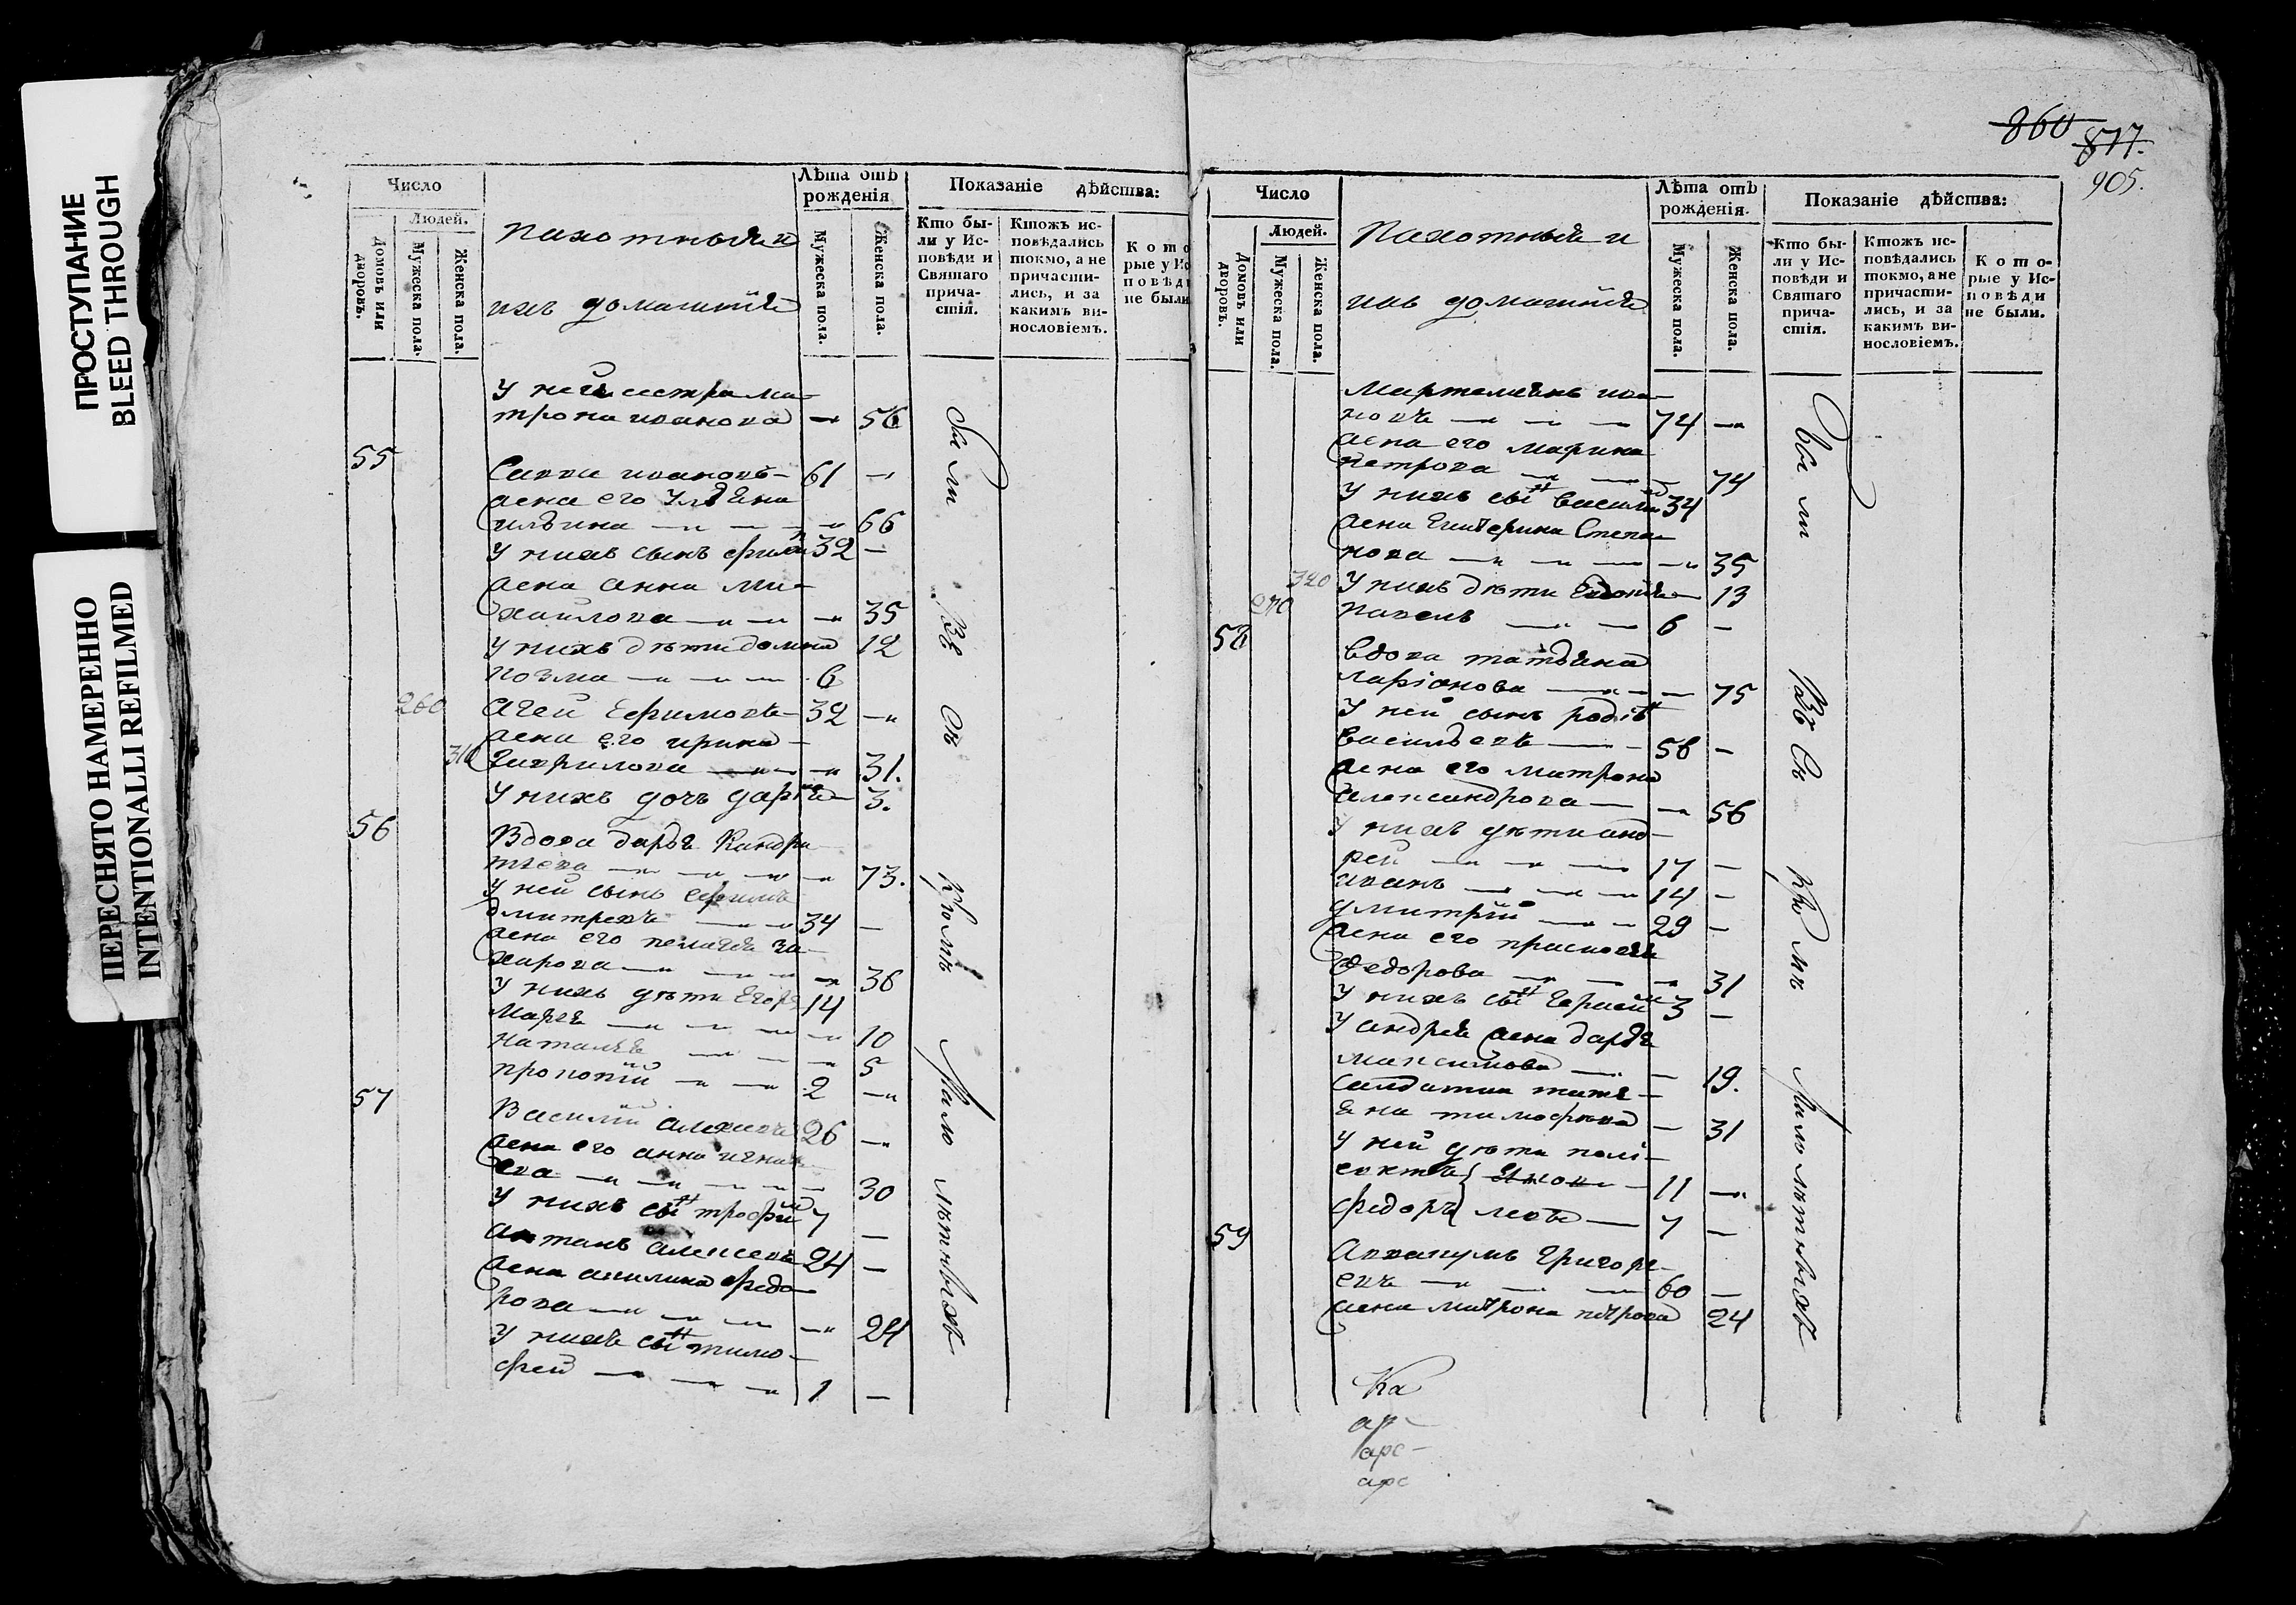 ПРОСТУПАНИЕ
BLEED THROUGH
ПЕРЕСНЯТО НАМЕРЕННО
INTENTIONALLI REFILMED
Число
Людей.
Домовъ или дворовъ.
Мужеска пола.
Женска пола.
пахотныя и
ихъ домашнія
Лѣта отъ
рожденія
Мужеска пола.
Женска пола.
Показаніе дѣйства:
Кто бы-
ли у Ис-
повѣди и
Святаго
прича-
стія.
Ктожъ ис-
повѣдались
токмо, а не
причасти-
лись, и за
какимъ ви-
нословіемъ.
Кото
рые у Ис
повѣди
не были
у нея сестра ма-
трона иванова — 56
55
Савва ивановъ — 61 —
жена его ульяна
ильина — 66
у нихъ сынъ 32 —
жена анна ми-
хаилова — 35
у нихъ дѣти домна 12
козма — 6
260
агей ефимовъ — 32 —
жена его ирина
310 гаврилова — 31.
у нихъ дочь дарья 3.
56
Вдова дарья Кандра
тьева — 73.
у ней сынъ ефимъ
дмитревъ — 34 —
жена его пелагея за-
харова — 36
у нихъ дѣти Егоръ 14
марья — 10
наталья — 5
прокопій — 2 —
57
Василій алексевъ 26 —
жена его анна игнать
ева — 30
у нихъ сынъ трофим 7 —
антанъ алексевъ 24 —
жена акилина федо-
рова — 24
у нихъ сынъ тимо-
фей — 1 —
Были
Всѣ
Кромѣ
Малолѣтныхъ
860
817.
905.
Число
Людей.
Домовъ или дворовъ.
Мужеска пола.
Женска пола.
Пахотныя и
ихъ домашнія
Лѣта отъ
рожденія.
Мужеска пола.
Женска пола.
Показаніе дѣйства:
Кто бы-
ли у Ис-
повѣди и
Святаго
прича-
стія.
Ктожъ ис-
повѣдались
токмо, а не
причасти-
лись, и за
какимъ ви-
нословіемъ.
Кото-
рые у Ис-
повѣди
не были.
ива-
новъ — 74 —
жена его марина
петрова — 74
у нихъ сынъ василій 34
жена Екатерина Степа-
нова — 35
320
у нихъ дѣти Евдокия — 13
270
павелъ — 6 —
58
вдова татьяна
ларіонова — 75
у ней сынъ родіо
васильевъ — 56 —
жена его матрона
александрова — 56
у нихъ дѣти анд-
рей — 17 —
иванъ — 14 —
дмитрій — 29 —
жена его прасковья
федорова — 31
у нихъ сынъ 3 —
у андрея жена дарья
максимова — 19.
салдатка татья-
яна тимофеева — 31
у ней дѣти полі-
евктъ — 11 —
федоръ — 7 —
59
Аввакумъ григорь-
евъ — 60 —
жена матрона петрова 24
Были
Всѣ
Кромѣ
Малолѣтныхъ
Ка
ар-
арс-
арс